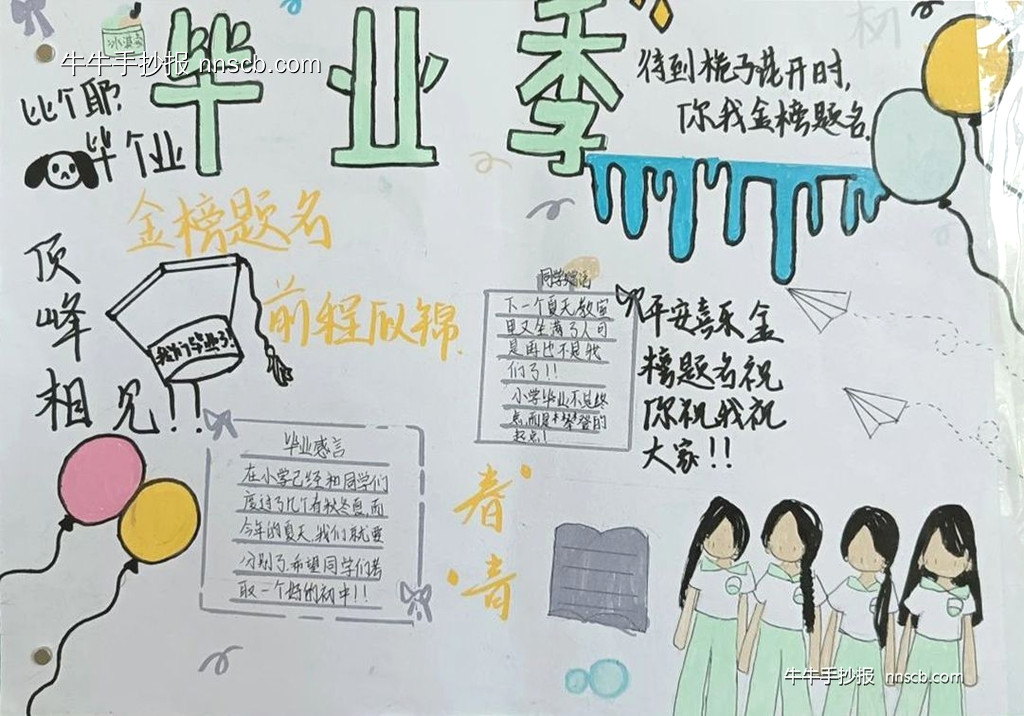 毕业季
冰淇淋
牛牛手抄报 nnscb.com
比个耶
毕个业
待到栀子花开时,
你我金榜题名。
金榜题名
前程似锦.
顶
峰
相
见!!
我们毕业了!
下一个夏天教室
里又坐满了人可
是再也不是我
们了!!
小学毕业不是终
点,而是攀登的
起点!
平安喜乐金
榜题名祝
你祝我祝
大家!!
毕业感言
在小学已经和同学们
度过了几个春秋冬夏,而
今年的夏天,我们就要
分别了,希望同学们考
取一个好的初中!!
牛牛手抄报 nnscb.com